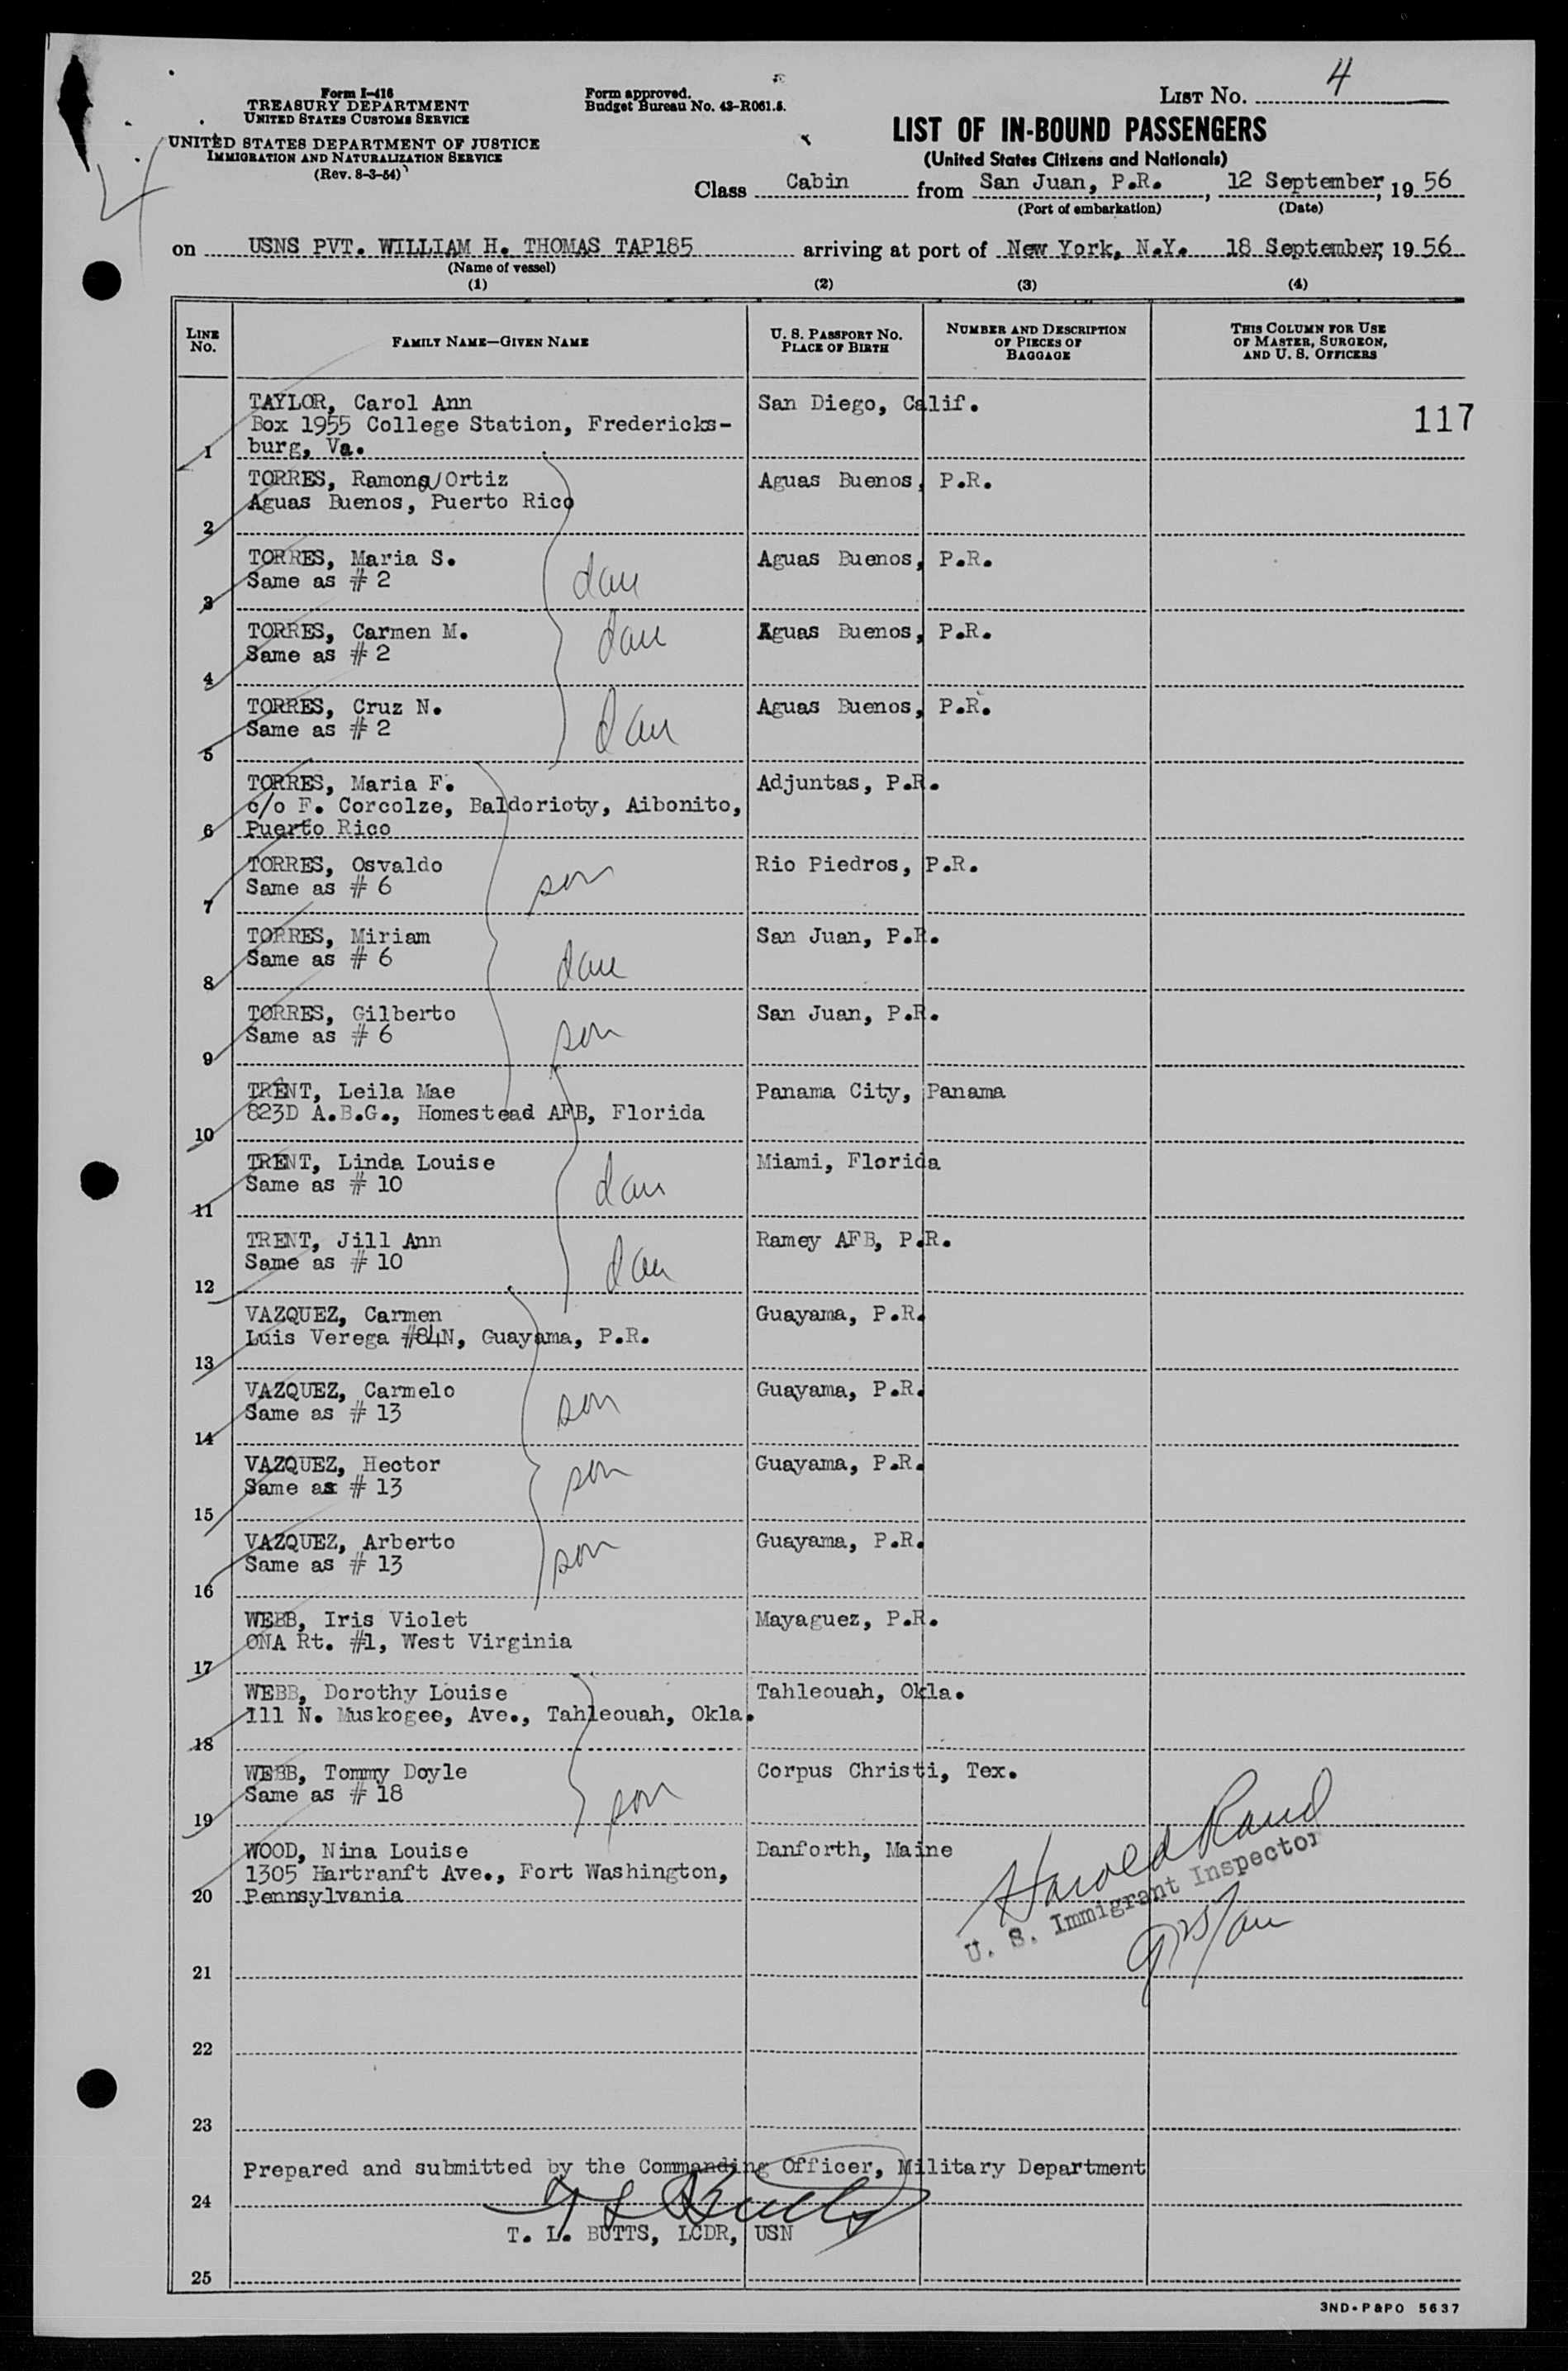 Form I-416
TREASURY DEPARTMENT
UNITED STATES CUSTOMS SERVICE
UNITED STATES DEPARTMENT OF JUSTICE
IMMIGRATION AND NATURALIZATION SERVICE
(Rev. 8-3-54)
4
Form approved.
Budget Bureau No. 43-R061.5.
LIST No. 4
LIST OF IN-BOUND PASSENGERS
(United States Citizens and Nationals)
Class Cabin from San Juan, P.R., 12 September, 1956
(Port of embarkation) (Date)
on USNS PVT. WILLIAM H. THOMAS TAP185 arriving at port of New York, N.Y. 18 September, 1956
(Name of vessel)
(1) (2) (3) (4)
LINE No. FAMILY NAME—GIVEN NAME U. S. PASSPORT NO. PLACE OF BIRTH NUMBER AND DESCRIPTION OF PIECES OF BAGGAGE THIS COLUMN FOR USE OF MASTER, SURGEON, AND U. S. OFFICERS
TAYLOR, Carol Ann San Diego, Calif.
Box 1955 College Station, Fredericks- 117
1 burg, Va.
TORRES, Ramona/Ortiz Aguas Buenos, P.R.
Aguas Buenos, Puerto Rico
2
TORRES, Maria S. dau Aguas Buenos, P.R.
Same as # 2
3
TORRES, Carmen M. dau Aguas Buenos, P.R.
Same as # 2
4
TORRES, Cruz N. dau Aguas Buenos, P.R.
Same as # 2
5
TORRES, Maria F. Adjuntas, P.R.
c/o F. Corcolze, Baldorioty, Aibonito,
6 Puerto Rico
TORRES, Osvaldo son Rio Piedros, P.R.
Same as # 6
7
TORRES, Miriam dau San Juan, P.R.
Same as # 6
8
TORRES, Gilberto son San Juan, P.R.
Same as # 6
9
TRENT, Leila Mae Panama City, Panama
823D A.B.G., Homestead AFB, Florida
10
TRENT, Linda Louise dau Miami, Florida
Same as # 10
11
TRENT, Jill Ann dau Ramey AFB, P.R.
Same as # 10
12
VAZQUEZ, Carmen Guayama, P.R.
Luis Verega #84N, Guayama, P.R.
13
VAZQUEZ, Carmelo son Guayama, P.R.
Same as # 13
14
VAZQUEZ, Hector son Guayama, P.R.
Same as # 13
15
VAZQUEZ, Arberto son Guayama, P.R.
Same as # 13
16
WEBB, Iris Violet Mayaguez, P.R.
ONA Rt. #1, West Virginia
17
WEBB, Dorothy Louise Tahleouah, Okla.
111 N. Muskogee, Ave., Tahleouah, Okla.
18
WEBB, Tommy Doyle son Corpus Christi, Tex.
Same as # 18
19
WOOD, Nina Louise Danforth, Maine
1305 Hartranft Ave., Fort Washington,
20 Pennsylvania
Harold Rand
U. S. Immigrant Inspector
21
22
23
Prepared and submitted by the Commanding Officer, Military Department
24
T L Butts
T. L. BUTTS, LCDR, USN
25
3ND-P&PO 5637